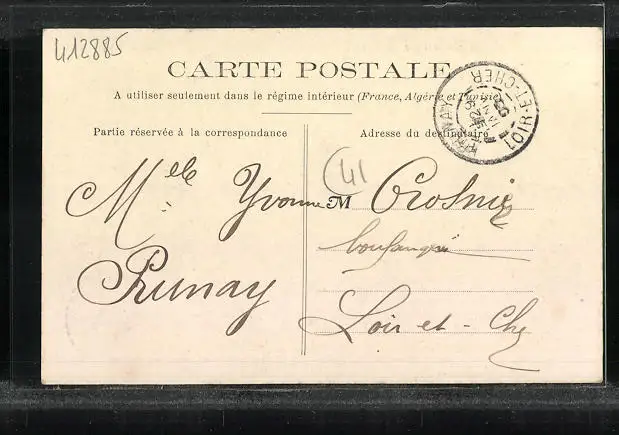 412885
CARTE POSTALE
A utiliser seulement dans le régime intérieur (France, Algérie et Tunisie)
Partie réservée à la correspondance
Adresse du destinataire
41
Melle Yvonne M Crosnier
boulangère
Prunay
Loir-et-Cher
LOIR-ET-CHER